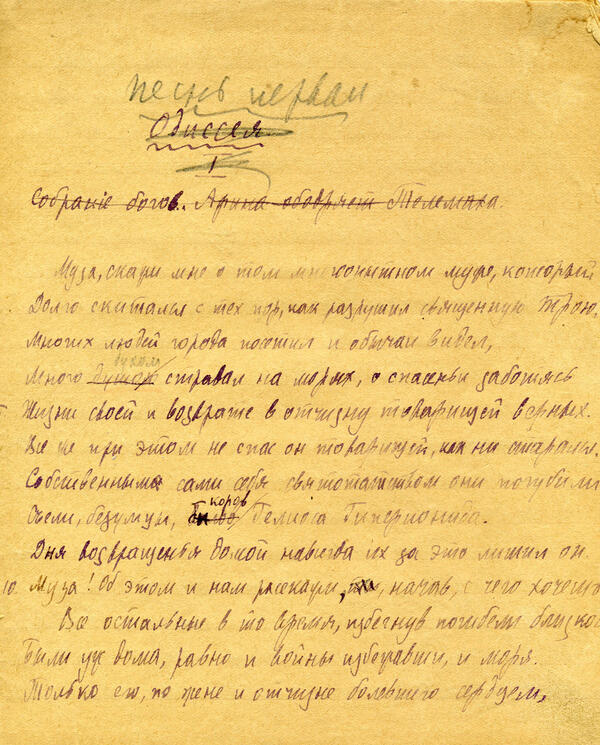 Песнь первая
Одиссея
I
Собрание богов. Афина ободряет Телемаха.
Муза, скажи мне о том многоопытном муже, который
Долго скитался с тех пор, как разрушил священную Трою,
Многих людей города посетил и обычаи видел,
духом
Много душою страдал на морях, о спасеньи заботясь
Жизни своей и возврате в отчизну товарищей верных.
Все же при этом не спас он товарищей, как ни старался.
Собственным сами себя святотатством они погубили
коров
Съели, безумцы, Гелиоса Гиперионида.
Дня возвращенья домой навсегда их за это лишил он.
10. Муза! Об этом и нам расскажи, начав, с чего хочешь
Все остальные в то время, избегнув погибели близкой
Были уж дома, равно и войны избежавши, и моря.
Только его, по жене и отчизне болевшего сердцем,